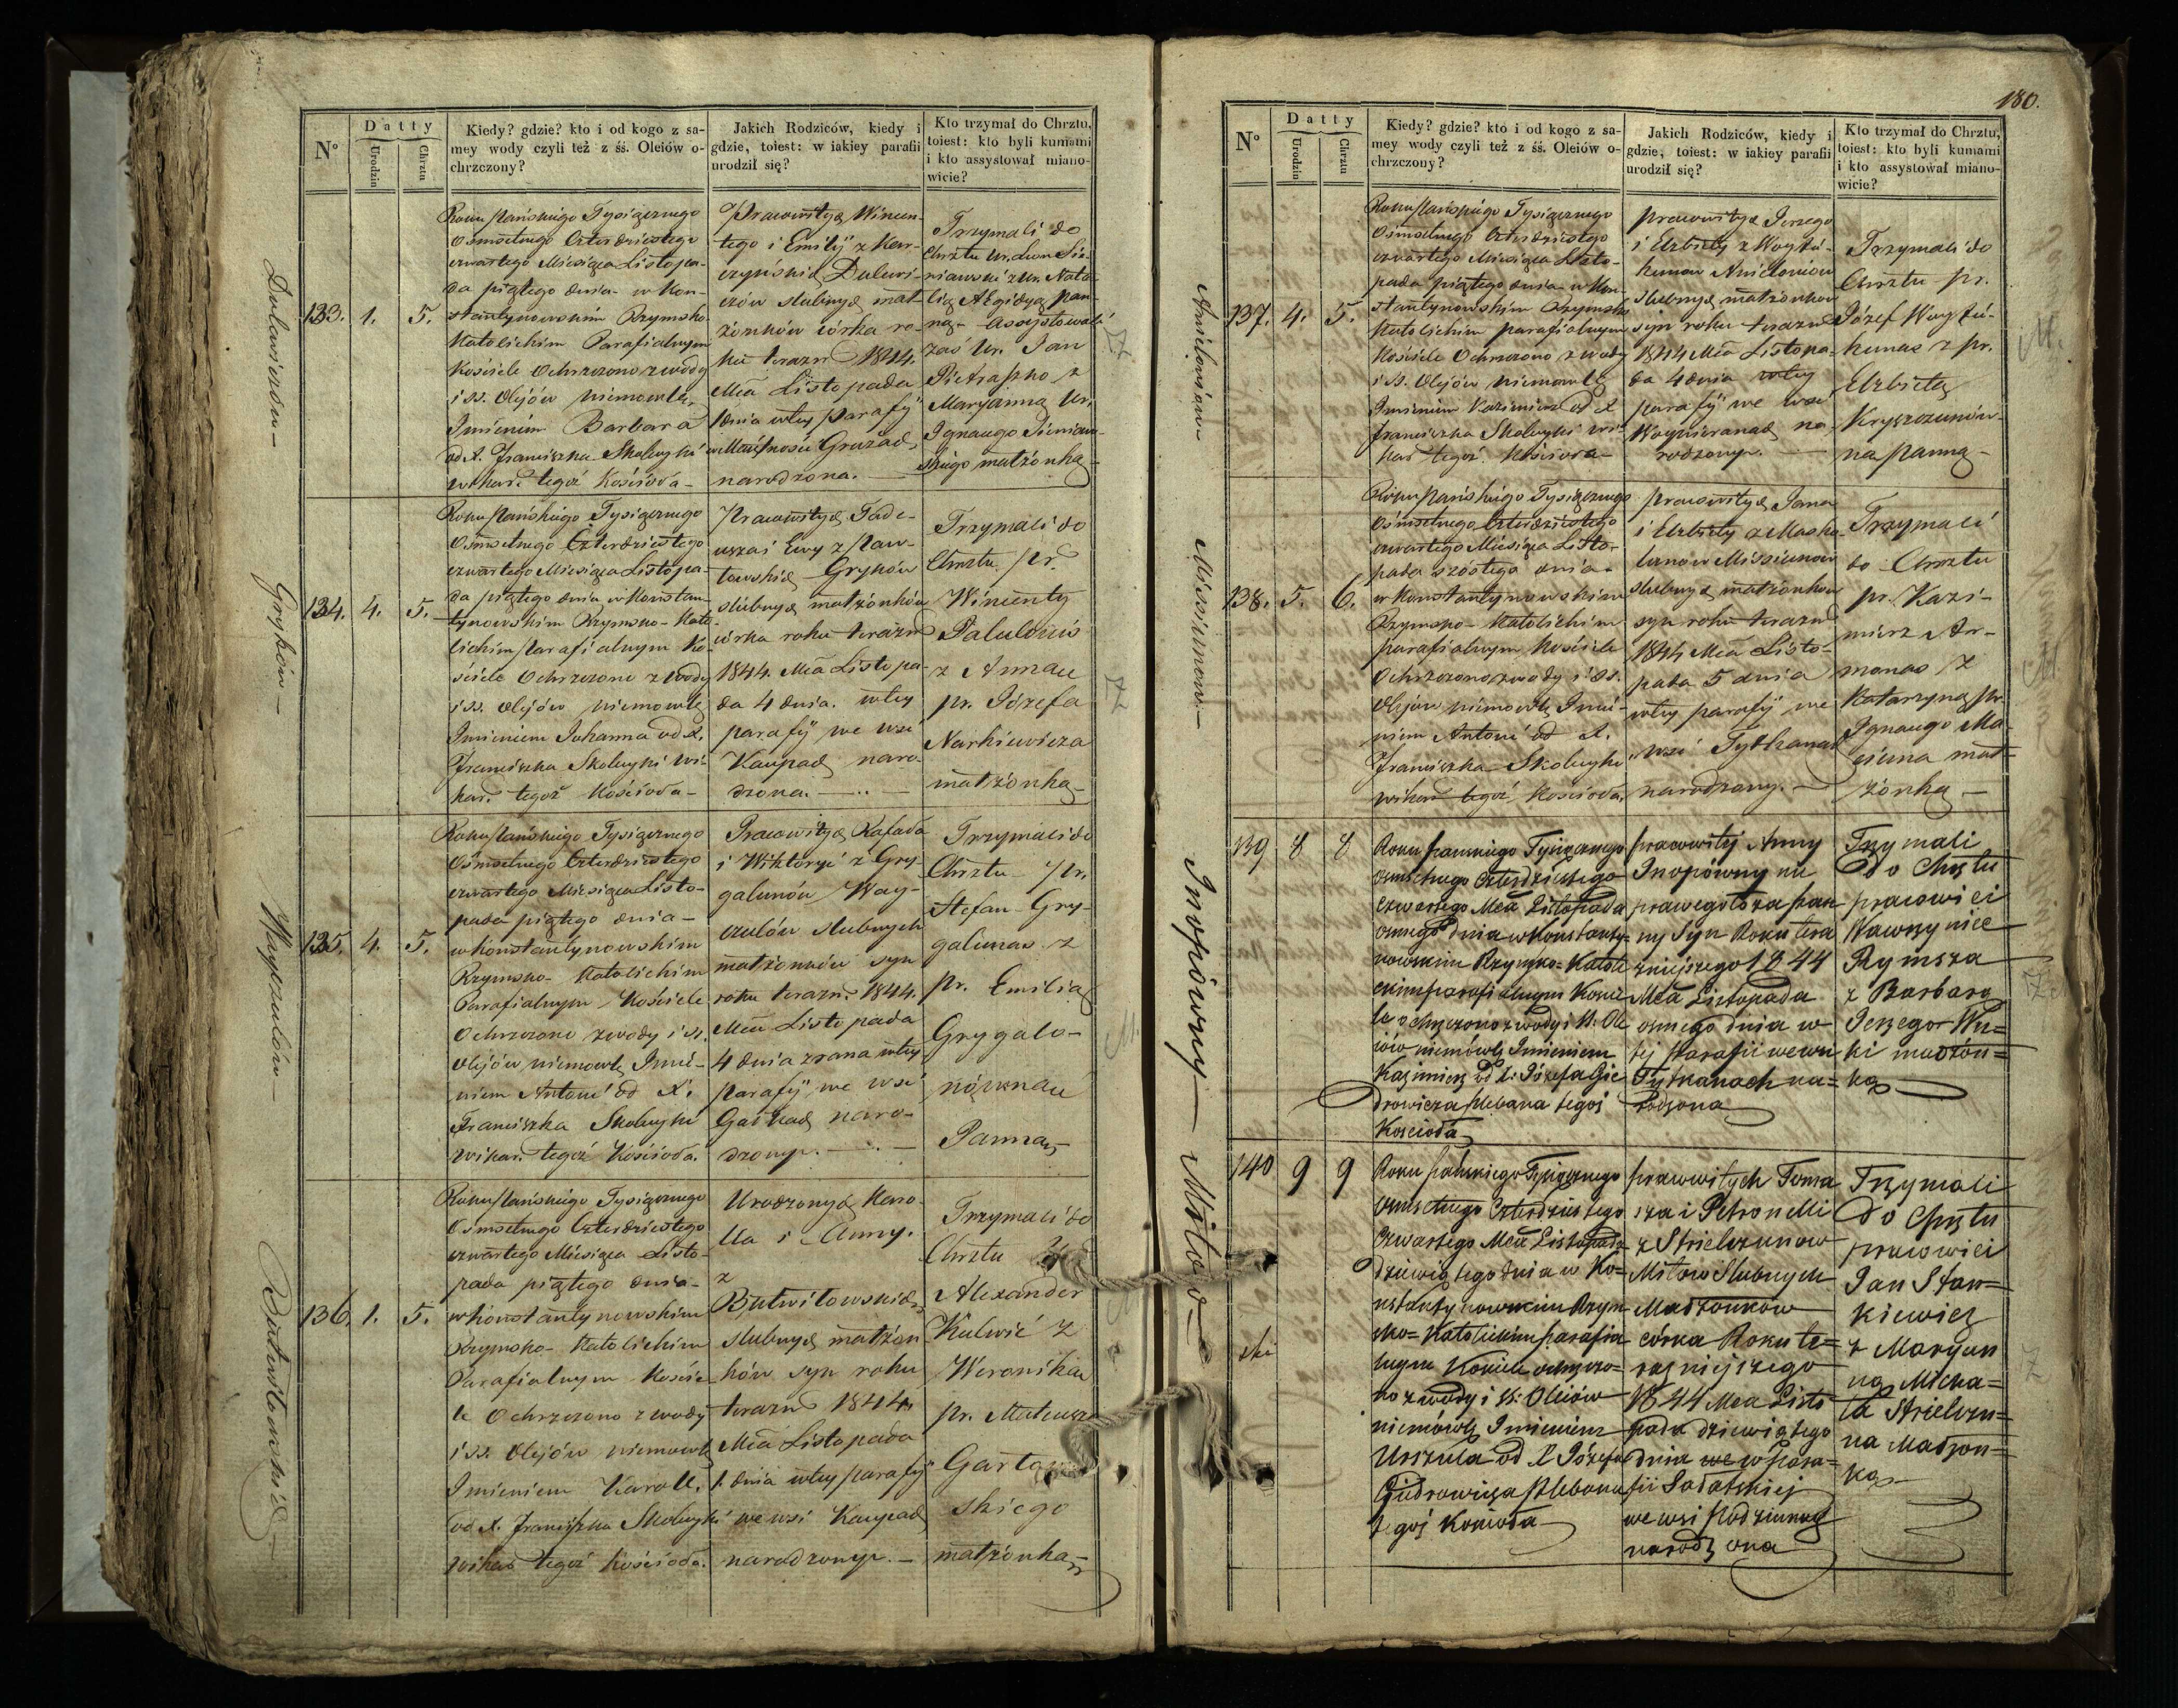 180.
N°
Datty
Urodzin
Chrztu
Kiedy? gdzie? kto i od kogo z sa-
mey wody czyli też z śś. Oleiów o-
chrzczony?
Jakich Rodziców, kiedy i
gdzie, toiest: w iakiey parafii
urodził się?
Kto trzymał do Chrztu,
toiest: kto byli kumami
i kto assystował miano-
wicie?
133.
1.
5.
Roku Pańskiego Tysiącznego
Osmsetnego Czterdziestego
czwartego Miesiąca Listopa-
da piątego dnia w Kon-
stantynowskim Rzymsko-
Katolickim Parafialnym
Kościele Ochrzczono z wody
i ss. Olejów niemowlę
Imieniem Barbara
od X. Franciszka
wikar. tegoż Kościoła-
Pracowitych Wincen-
tego i Emilij z Kar-
czyńskich
ślubnych mał-
żonków córka ro-
ku terazn. 1844.
Mca Listopada
1 dnia w tey parafij
narodzona.
Trzymali do
Chrztu Ur. Leon Sie-
niawski z Ur. Nata-
lią pan-
ną- Assystowali
zaś Ur. Jan
Pietraszko z
Maryanną Ur.
Ignacego Sieniaw-
skiego małżonką-
134.
4.
5.
Roku Pańskiego Tysiącznego
Osmsetnego Czterdziestego
czwartego Miesiąca Listopa-
da piątego dnia w Konstan-
tynowskim Rzymsko-Kato-
lickim Parafialnym Ko-
ściele Ochrzczono z wody
i ss. Olejów niemowlę
Imieniem Johanna od X.
Franciszka wi-
kar. tegoż Kościoła-
Pracowitych Tade-
usza i Ewy z Paw-
łowskich Gryków
ślubnych małżonków
córka roku terazn.
1844. Mca Listopa-
da 4 dnia. w tey
parafij we wsi
naro-
dzona.
Trzymali do
Chrztu Pr.
Wincenty
z Anną
pr. Józefa
Narkiewicza
małżonką-
135.
4.
5.
Roku Pańskiego Tysiącznego
Osmsetnego Czterdziestego
czwartego Miesiąca Listo-
pada piątego dnia-
w Konstantynowskim
Rzymsko-Katolickim
Parafialnym Kościele
Ochrzczono z wody i ss.
Olejów niemowlę Imie-
niem Antoni od X.
Franciszka
wikar. tegoż Kościoła.
Pracowitych Rafała
i Wiktoryi z Gry-
galunów Way-
czulów ślubnych
małżonków syn
roku terazn. 1844.
Mca Listopada
4 dnia zrana w tey
parafij we wsi
naro-
dzony.
Trzymali do
Chrztu Pr.
Stefan Gry-
galunas z
pr. Emilią
Grygalo-
Panną-
136.
1.
5.
Roku Pańskiego Tysiącznego
Osmsetnego Czterdziestego
czwartego Miesiąca Listo-
pada piątego dnia-
w Konstantynowskim
Rzymsko-Katolickim
Parafialnym Koście-
le Ochrzczono z wody
i ss. Olejów niemowlę
Imieniem Karol.
od X. Franciszka
wikar. tegoż Kościoła.
Urodzonych Karo-
la i Anny.
z
Butwiłowskich
ślubnych małżon-
ków syn roku
terazn. 1844
Mca Listopada
1. dnia w tey parafij
we wsi
narodzony.
Trzymali do
Chrztu
Alexander
Kulwić z
Weroniką
pr. Mateusza
skiego
małżonką-
Dulewiczów-
Gryków-
Wayczulów-
Butwiłowskich-
N°
Datty
Urodzin
Chrztu
Kiedy? gdzie? kto i od kogo z sa-
mey wody czyli też z śś. Oleiów o-
chrzczony?
Jakich Rodziców, kiedy i
gdzie, toiest: w iakiey parafii
urodził się?
Kto trzymał do Chrztu,
toiest: kto byli kumami
i kto assystował miano-
wicie?
137.
4.
5.
Roku Pańskiego Tysiącznego
Osmsetnego Czterdziestego
czwartego Miesiąca Listo-
pada piątego dnia w Kon-
stantynowskim Rzymsko
Katolickim parafialnym
Kościele Ochrzczono z wody
i ss. Olejów niemowlę
Imieniem Kazimierz od X
Franciszka wi-
kar. tegoż Kościoła-
Pracowitych Jerzego
i Elżbiety z Woytu-
ślubnych małżonków
syn roku terazn.
1844 Mca Listopa-
da 4 dnia w tey
parafij we wsi
na
rodzony.
Trzymali do
Chrztu pr.
Józef Woytu-
z pr.
Elżbietą
na Panną-
138.
5.
6.
Roku Pańskiego Tysiącznego
Osmsetnego Czterdziestego
czwartego Miesiąca Listo-
pada szóstego dnia-
w Konstantynowskim
Rzymsko-Katolickim
parafialnym Kościele
Ochrzczono z wody i ss.
Olejów niemowlę Imie-
niem Antoni od X.
Franciszka
wikar tegoż Kościoła.
Pracowitych Jana
i Elżbiety z Masko-
lunów Missiunów
ślubnych małżonków
syn roku terazn.
1844 Mca Listo-
pada 5 dnia
w tey parafij we
wsi
narodzony.
Trzymali
do Chrztu
pr. Kazi-
mierz Ar-
monas z
Katarzyną pr.
Ignacego Ma-
mał-
żonką-
139
8
8
Roku Pańskiego Tysiącznego
osmsetnego czterdziestego
czwartego Mca Listopada
osmego dnia w Konstanty-
nowskim Rzymsko-Katoli
ckim parafialnym Koście
le ochrzczono z wody i SS. Ole
iów niemowlę Imieniem
Kazimierz od X. Józefa Gie
drowicza plebana tegoż
Kościoła
pracowitej Anny
Inopówny nie
prawego łoża pan
ny syn Roku tera
zniejszego 1844
Mca Listopada
osmego dnia w
tej parafii we wsi
Tytkanach na=
rodzona
Trzymali
do Chrztu
pracowici
Wawrzyniec
Rymsza
z Barbarą
Jerzego Wu=
ki małżon=
ką
140
9
9
Roku Pańskiego Tysiącznego
osmsetnego czterdziestego
czwartego Mca Listopada
dziewiątego dnia w Ko=
nstantynowskim Rzym
sko=Katolickim parafia
lnym Kościele ochrzczo=
no z wody i SS. Oleiów
niemowlę Imieniem
Urszula od X Józefa
Giedrowicza Plebana
tegoż Kościoła
pracowitych Toma
sza i Petronelli
z Strielczunow
Mitow Slubnych
Małżonków
córka Roku te=
razniejszego
1844 Mca Listo
pada dziewiątego
dnia we w para=
fii
we wsi
narodzona
Trzymali
do Chrztu
pracowici
Jan Stan=
kiewicz
z Maryan
ną Micha=
ła Strielczu=
na Małżon=
ką
Missiunow-
Inopówny-
Mitow-